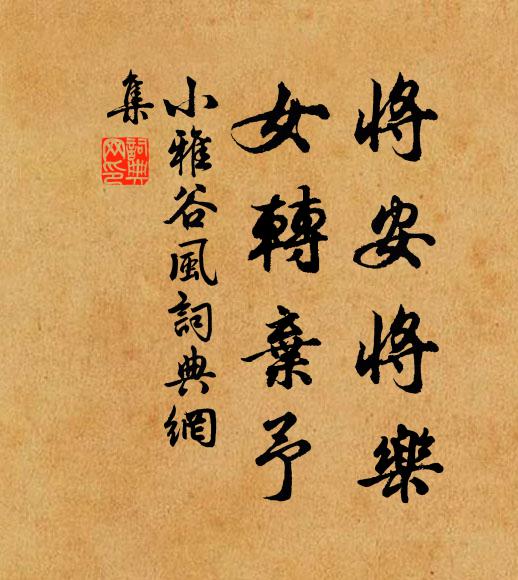 將安將樂
女轉棄予
小雅谷風詞典網
集
詞典網印